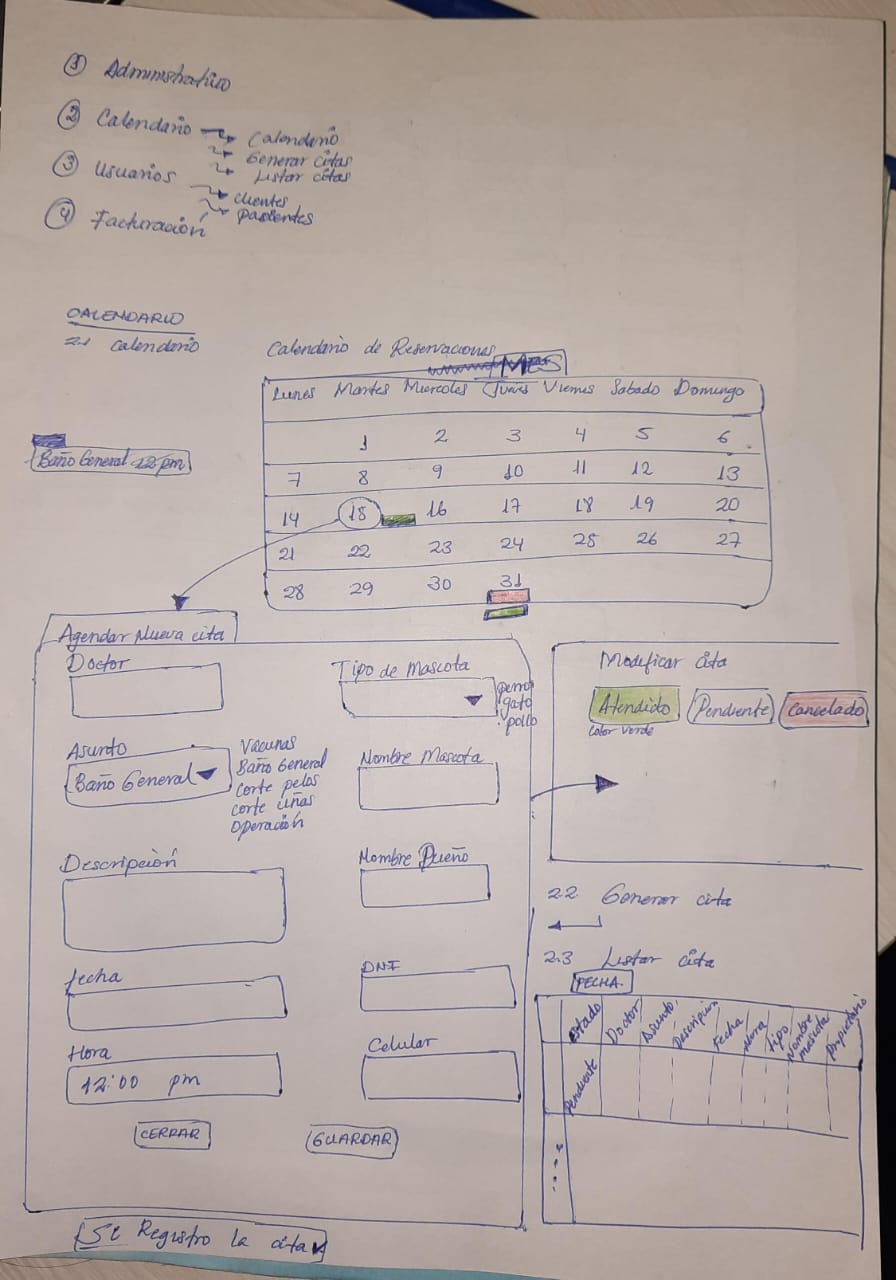 ① Administrativo
② Calendario
Calendario
Generar citas
Listar citas
③ Usuarios
clientes
pacientes
④ Facturación
CALENDARIO
2.1 Calendario
Calendario de Reservaciones
MES
Lunes Martes Miercoles Jueves Viernes Sabado Domingo
1 2 3 4 5 6
7 8 9 10 11 12 13
14 15 16 17 18 19 20
21 22 23 24 25 26 27
28 29 30 31
Baño General 12 pm
Agendar Nueva cita
Doctor
Tipo de Mascota
perro
gato
pollo
Asunto
Baño General
Vacunas
Baño General
corte pelos
corte uñas
operación
Nombre Mascota
Descripción
Nombre Dueño
fecha
DNI
Hora
12:00 pm
Celular
CERRAR
GUARDAR
Se Registro la cita
Modificar cita
Atendido Pendiente Cancelado
Color Verde
2.2 Generar cita
2.3 Listar cita
FECHA.
Estado Doctor Asunto Descripcion Fecha Hora Tipo Nombre mascota Propietario
Pendiente